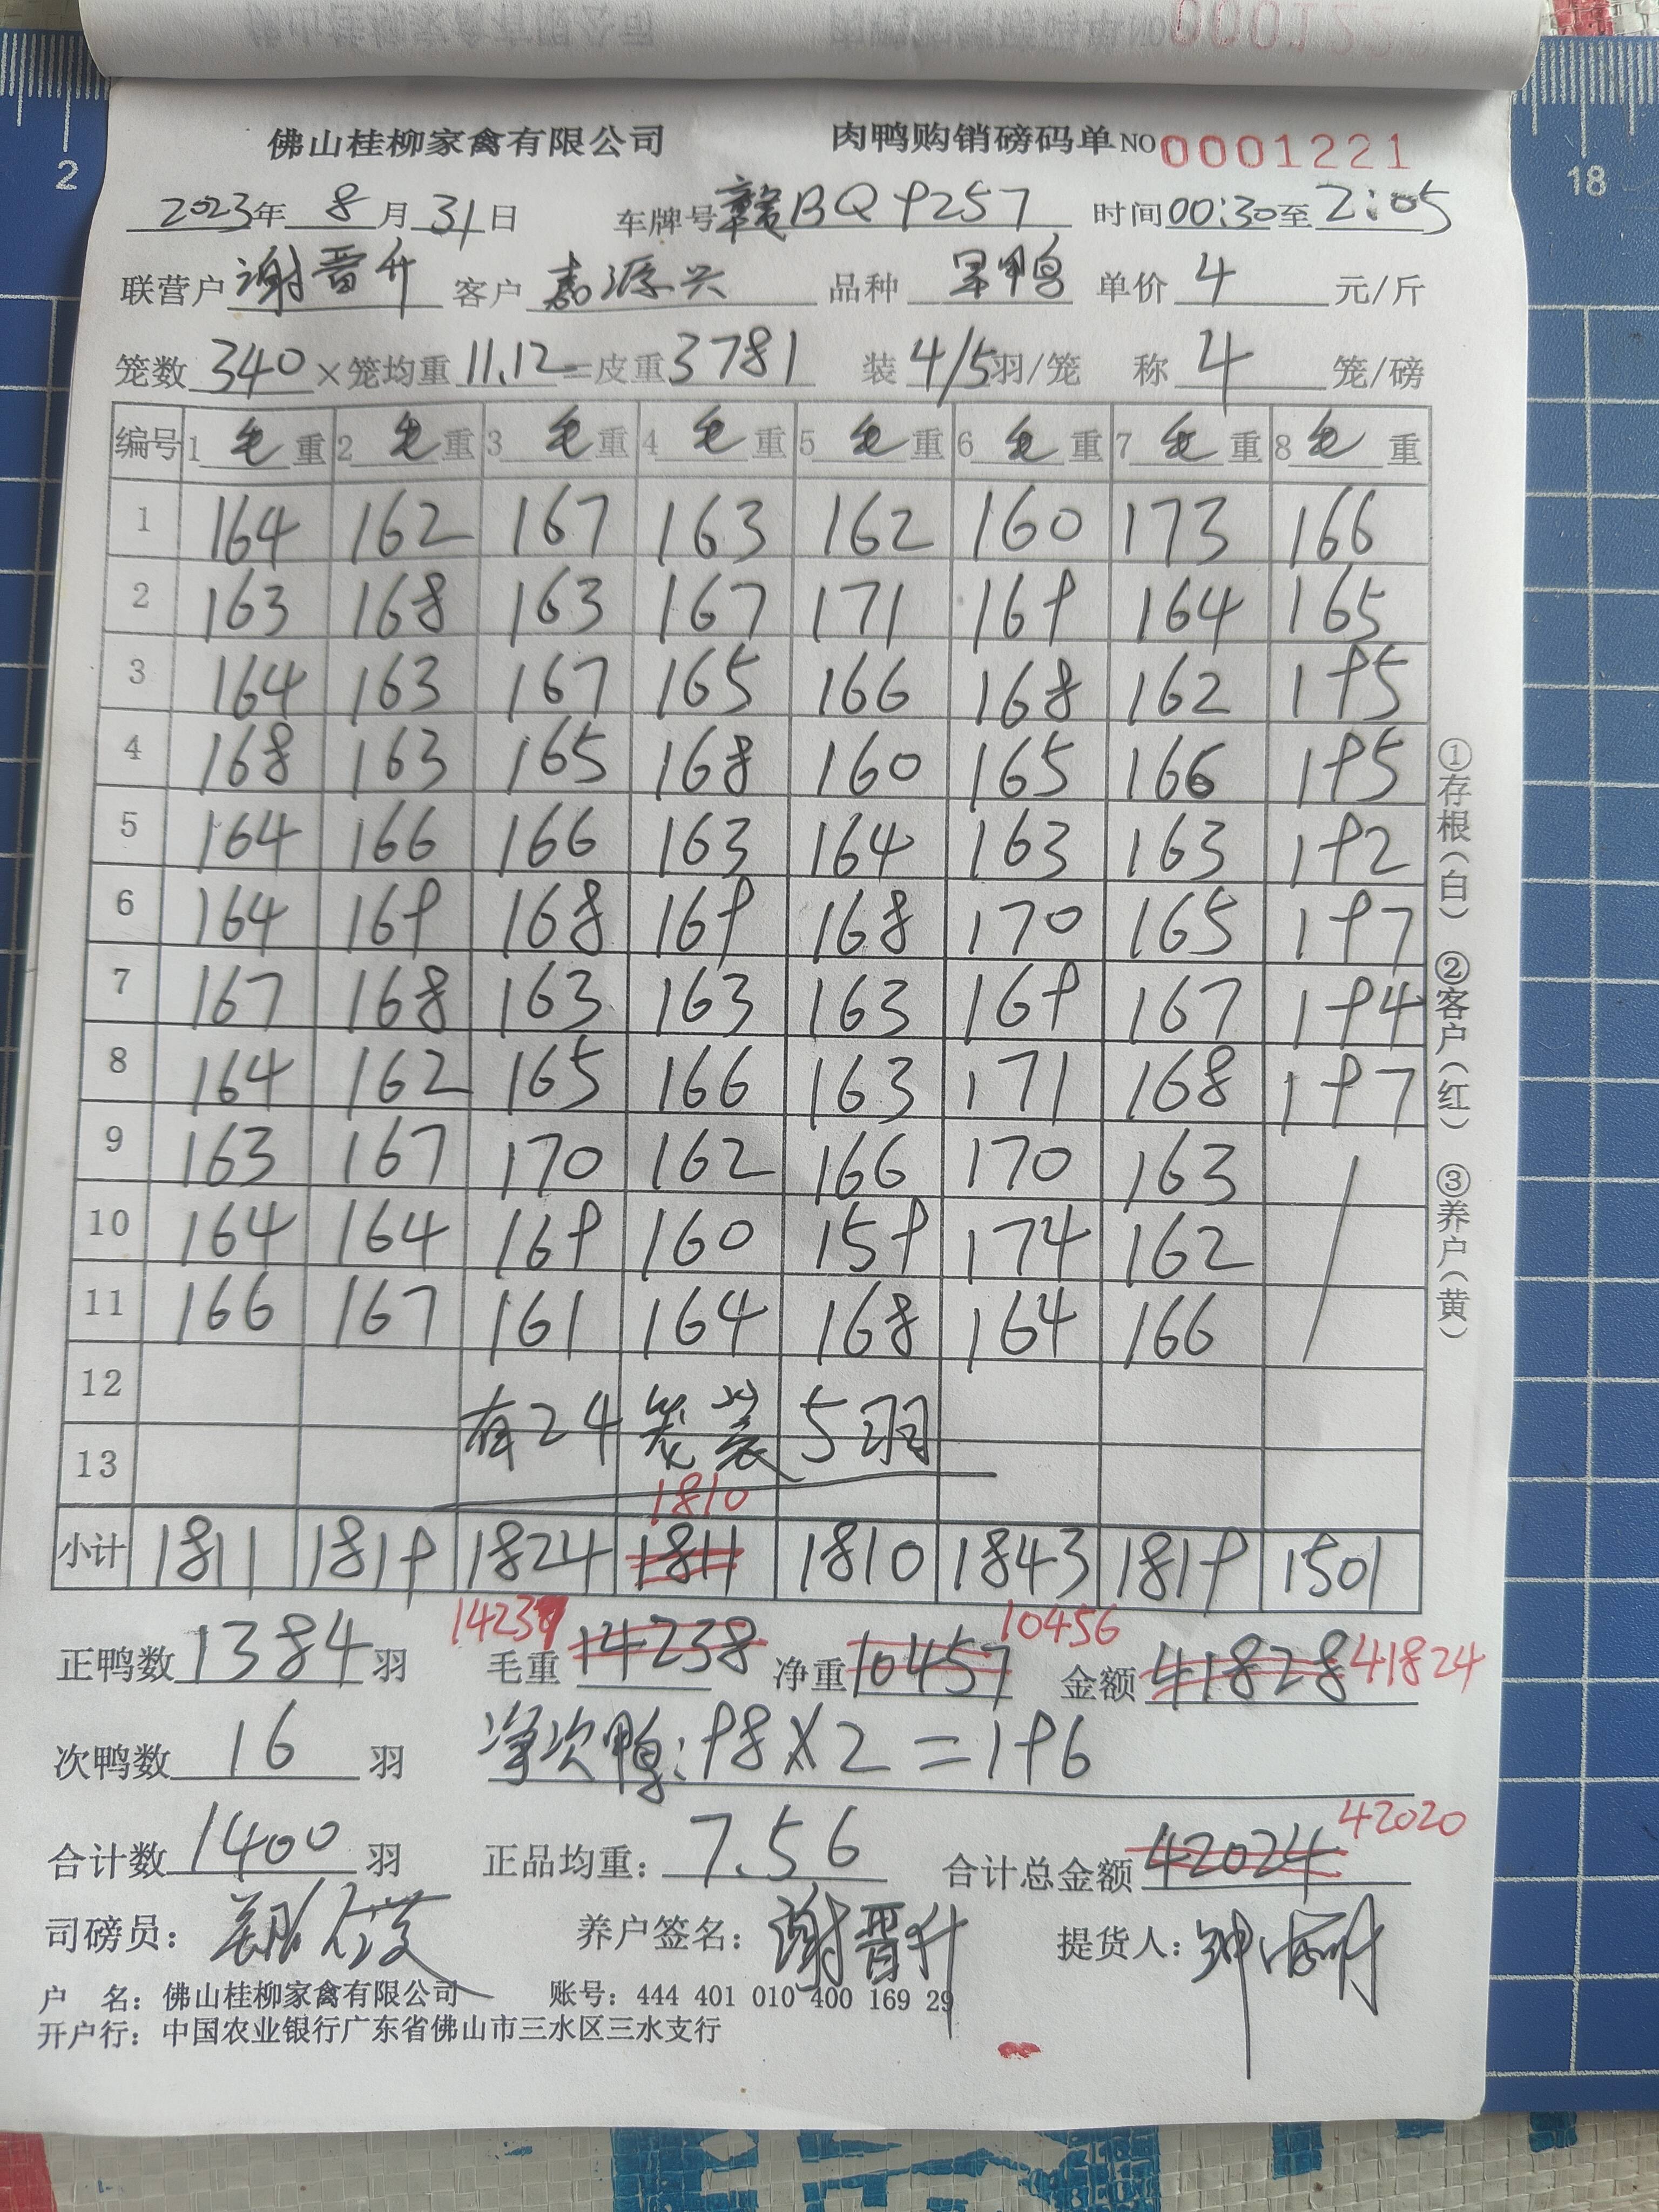 0001222
佛山桂柳家禽有限公司 肉鸭购销磅码单 NO 0001221
2023年 8月31日 车牌号赣BQ9257 时间00:30至2:05
联营户谢晋升 客户嘉源兴 品种旱鸭 单价4元/斤
笼数340×笼均重11.12=皮重3781 装4/5羽/笼 称4笼/磅
编号 1毛重 2毛重 3毛重 4毛重 5毛重 6毛重 7毛重 8毛重
1 164 162 167 163 162 160 173 166
2 163 168 163 167 171 169 164 165
3 164 163 167 165 166 168 162 195
4 168 163 165 168 160 165 166 195
5 164 166 166 163 164 163 163 192
6 164 169 168 169 168 170 165 197
7 167 168 163 163 163 169 167 194
8 164 162 165 166 163 171 168 197
9 163 167 170 162 166 170 163
10 164 164 169 160 159 174 162
11 166 167 161 164 168 164 166
12
有24笼装5羽
13
1810
小计 1811 1819 1824 1811 1810 1843 1819 1501
正鸭数1384羽 14237 毛重14238 净重10457 10456 金额41828 41824
次鸭数16羽 净次鸭:98×2=196
合计数1400羽 正品均重:7.56 合计总金额42024 42020
司磅员: 养户签名:谢晋升 提货人:
户 名:佛山桂柳家禽有限公司 账号:444 401 010 400 169 29
开户行:中国农业银行广东省佛山市三水区三水支行
①存根(白) ②客户(红) ③养户(黄)
2
18